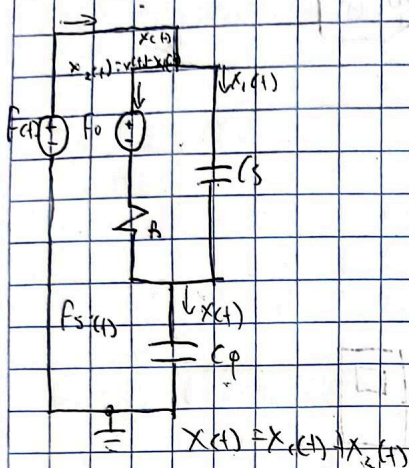 x(t)
x₂(t)=x(t)-x₁(t)
↓x₁(t)
F(t)
F0
Cs
R
Fs(t)
↓x(t)
Cp
x(t)=x₁(t)+x₂(t)